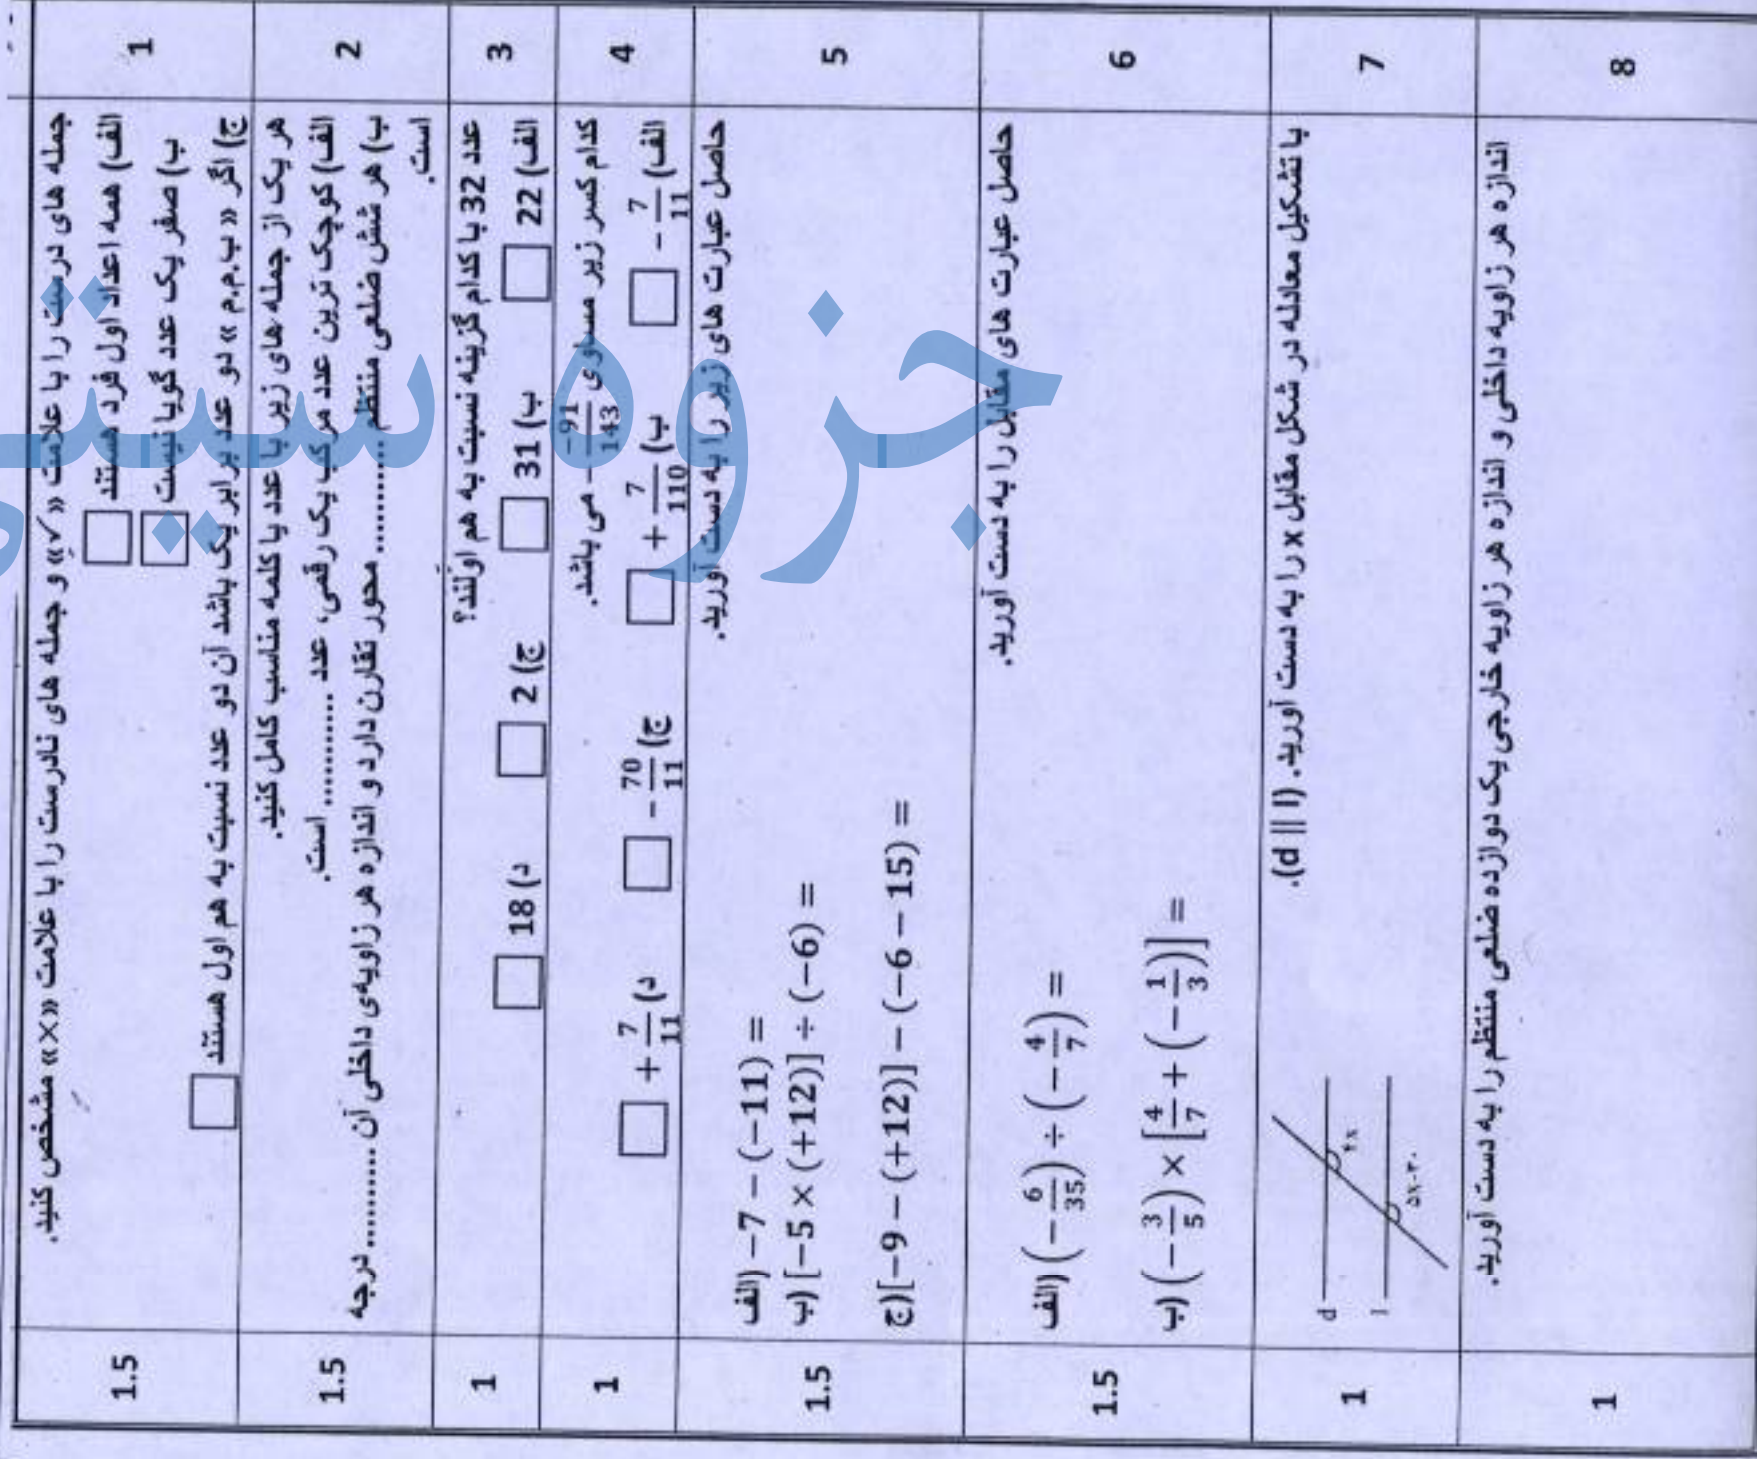 1 جمله های درست را با علامت «✓» و جمله های نادرست را با علامت «×» مشخص کنید. 1.5
الف) همه اعداد اول فرد هستند □
ب) صفر یک عدد گویا نیست □
ج) اگر « ب.م.م » دو عدد برابر یک باشد آن دو عدد نسبت به هم اول هستند □
2 هر یک از جمله های زیر با عدد یا کلمه مناسب کامل کنید. 1.5
الف) کوچک ترین عدد مرکب یک رقمی، عدد ............ است.
ب) هر شش ضلعی منتظم ............ محور تقارن دارد و اندازه هر زاویه‌ی داخلی آن ............ درجه
است.
3 عدد 32 با کدام گزینه نسبت به هم اولند؟ 1
الف) 22 □ ب) 31 □ ج) 2 □ د) 18 □
4 کدام کسر زیر مساوی −(−91/143) می باشد. 1
الف) −7/11 □ ب) +7/110 □ ج) −70/11 □ د) +7/11 □
5 حاصل عبارت های زیر را به دست آورید. 1.5
الف) −7 − (−11) =
ب) [−5 × (+12)] ÷ (−6) =
ج) [−9 − (+12)] − (−6 − 15) =
6 حاصل عبارت های مقابل را به دست آورید. 1.5
الف) (−6/35) ÷ (−4/7) =
ب) (−3/5) × [4/7 + (−1/3)] =
7 با تشکیل معادله در شکل مقابل x را به دست آورید. (d || l). 1
d
۲x
l
۵x-۳۰
8 اندازه هر زاویه داخلی و اندازه هر زاویه خارجی یک دوازده ضلعی منتظم را به دست آورید. 1
جزوه